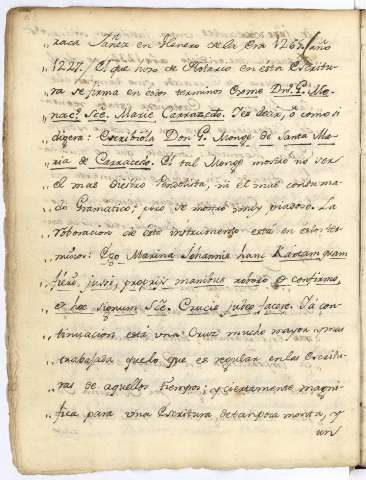 „ raca Yañez en Henero de la Era 1265/año
„ 1227./ El que hizo de Notario en esta Escritu-
„ ra se firma en estos terminos
„ nac.s Sce. Marie Carrazedo. Es decir, ò como si
„ digera: Escribiòla Don P. Monge de Santa Ma-
„ ria de Carracedo. El tal Monge mostrò no ser
„ el mas diestro Pendolista, ni el mas consuma-
„ do Gramatico; pero se mostrò muy piadoso. La
„ roboracion de este instrumento está en estos ter-
„ minos: Ego Marina Johannis hanc Kartam quam
„ fieri jussi, propriis manibus roboro et confirmo,
„ et hoc signum Sce. Crucis jubeo facere. Y à con-
„ tinuacion està una Cruz mucho mayor y mas
„ trabajada que lo que es regular en las Escritu-
„ ras de aquellos tiempos; y ciertamente magni-
„ fica para una Escritura de tan poca monta, y
un